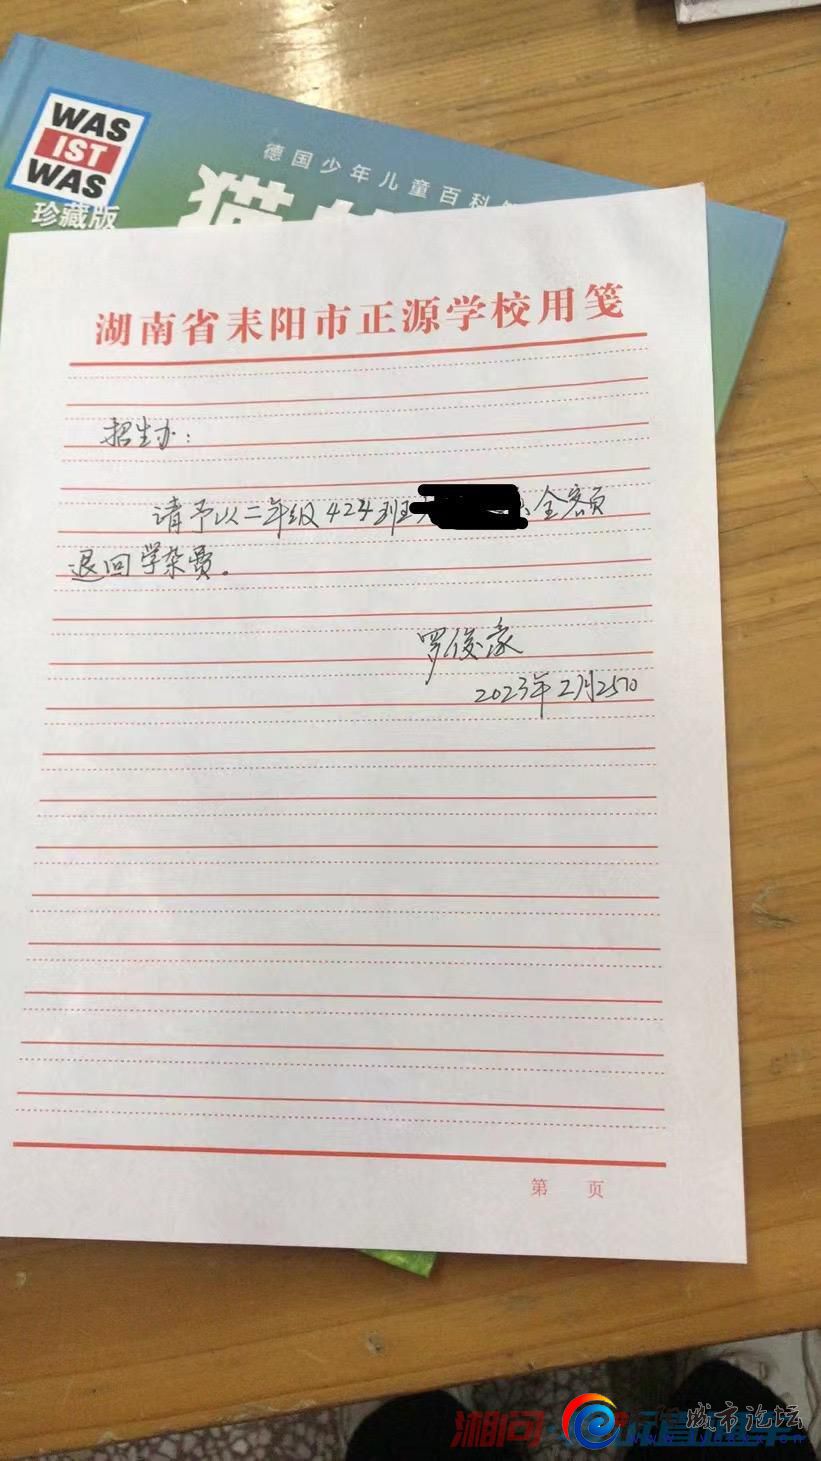 WAS
IST
WAS
珍藏版
德国少年儿童百科
猫
湖南省耒阳市正源学校用笺
招生办：
请予以二年级424班 全额
退回学杂费。
罗俊豪
2023年2月25日
第 页
湘问
城市论坛